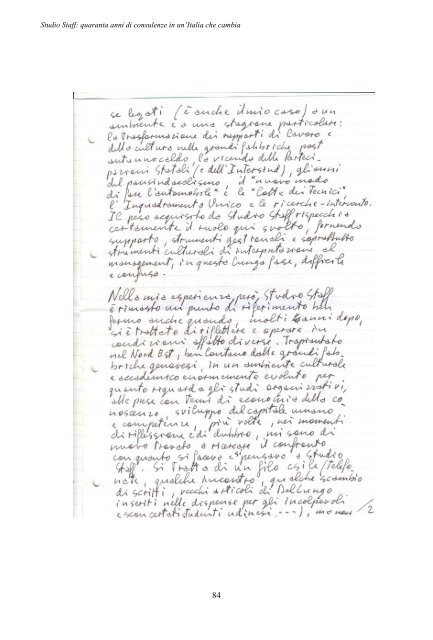 Studio Staff: quaranta anni di consulenze in un'Italia che cambia
se legati (è anche il mio caso) a un
ambiente e a una stagione particolare:
la trasformazione dei rapporti di lavoro e
della cultura nelle grandi fabbriche post
autunnocaldo, la vicenda delle Parteci-
pazioni Statali (e dell'Intersind), gli anni
del pansindacalismo, il "nuovo modo
di fare l'automobile" e le "lotte dei Tecnici",
l'Inquadramento Unico e le ricerche-intervento.
Il peso acquisito da Studio Staff rispecchia
certamente il ruolo qui svolto, fornendo
supporto, strumenti gestionali e soprattutto
strumenti culturali di interpretazione al
management, in questa lunga fase, difficile
e confusa.
Nella mia esperienza, però, Studio Staff
è rimasto un punto di riferimento ben
fermo anche quando, molti anni dopo,
si è trattato di riflettere e operare in
condizioni affatto diverse. Trapiantato
nel Nord Est, ben lontano dalle grandi fab-
briche genovesi, in un ambiente culturale
e accademico enormemente evoluto per
quanto riguarda gli studi organizzativi,
alle prese con temi di economia della co-
noscenza, sviluppo del capitale umano
e competenze, più volte, nei momenti
di riflessione e di dubbio, mi sono di
nuovo trovato a ricercare il confronto
con quanto si faceva e si pensava a Studio
Staff. Si tratta di un filo esile (telefo-
nate, qualche incontro, qualche scambio
di scritti, vecchi articoli di Dellungo
inseriti nelle dispense per gli incolpevoli
e sconcertati studenti udinesi ...), ma non /2
84